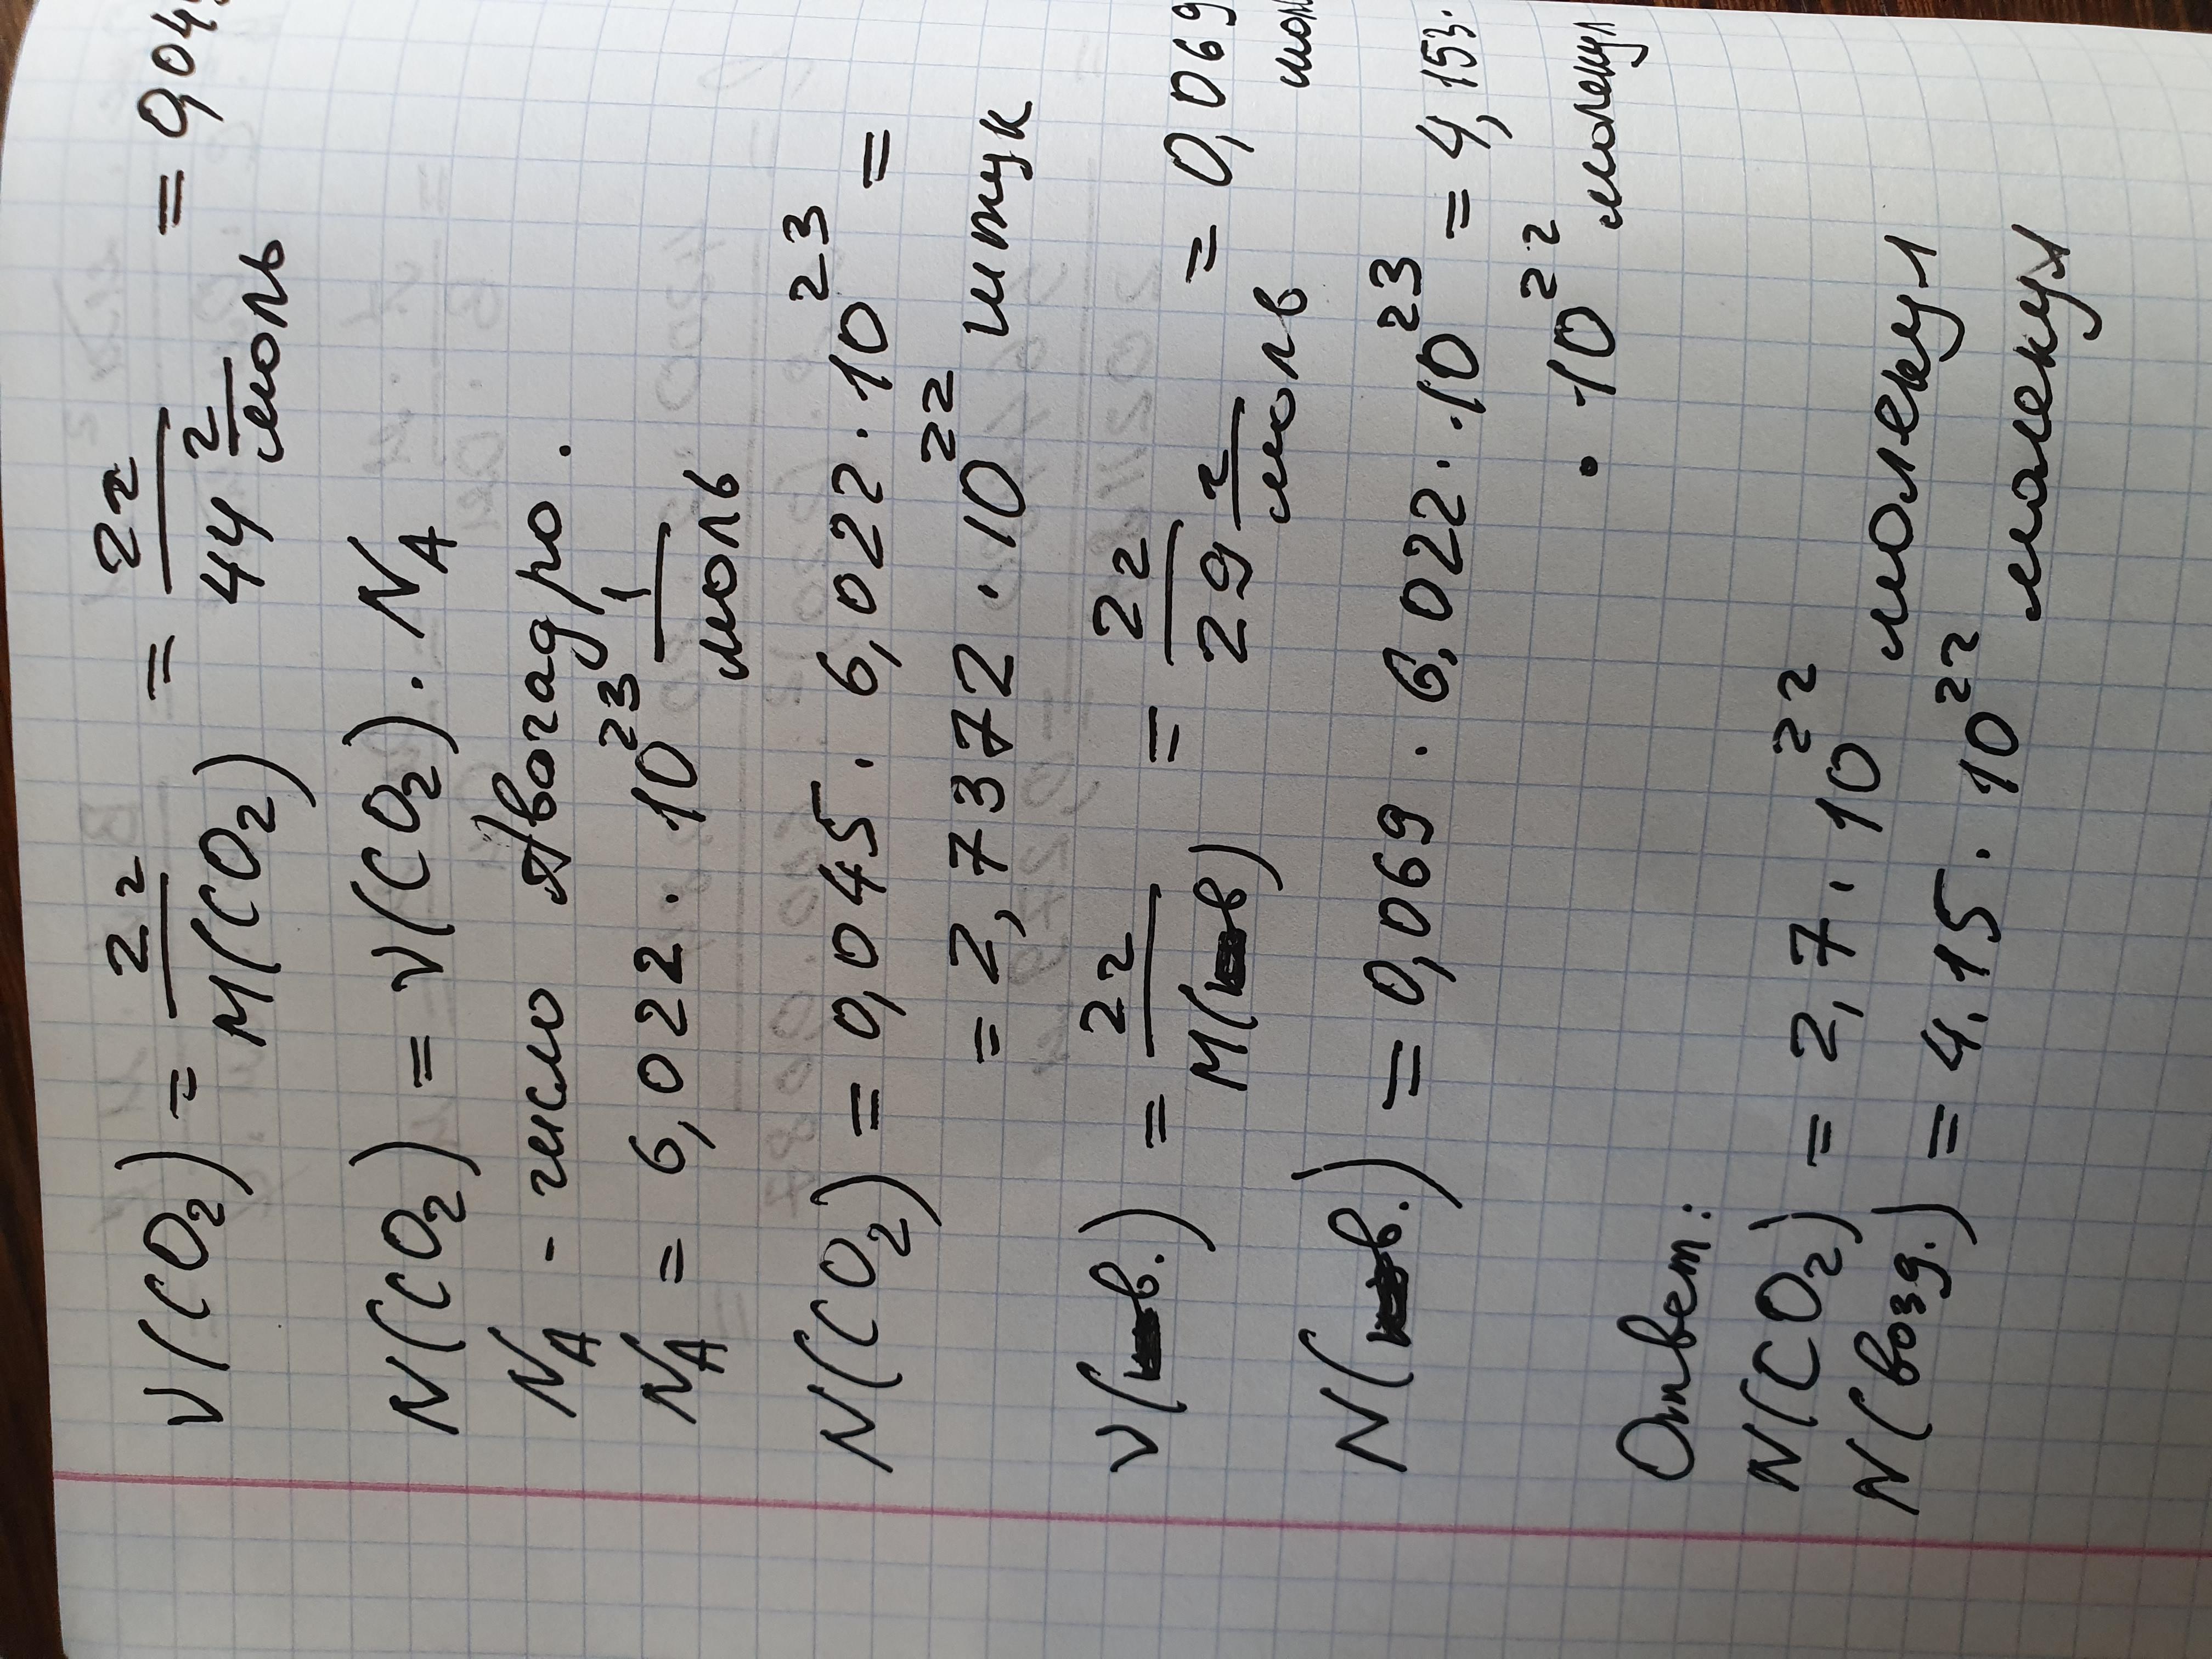 ν(CO₂) = 2г/M(CO₂) = 2г/44 г/моль = 0,04
N(CO₂) = ν(CO₂) · N_A
N_A - число Авогадро.
N_A = 6,022 · 10²³ 1/моль
N(CO₂) = 0,045 · 6,022 · 10²³ =
= 2,7372 · 10²² штук
ν( в.) = 2г/M( в) = 2г/29 г/моль = 0,069
мол
N( в.) = 0,069 · 6,022 · 10²³ = 4,153.
· 10²² молекул
Ответ:
N(CO₂) = 2,7 · 10²² молекул
N(возд.) = 4,15 · 10²² молекул